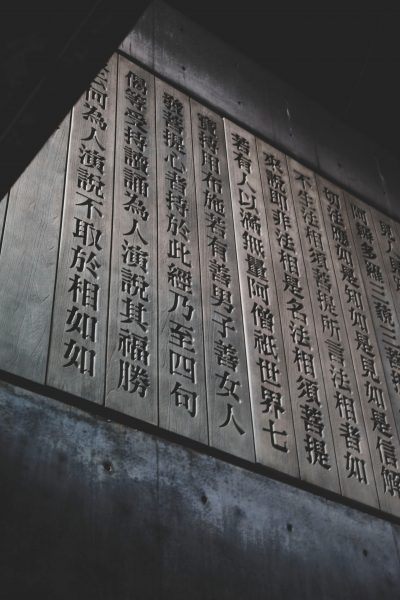 阿耨多羅三藐三菩提
切法應如是知如是見如是信解
不生法相須菩提所言法相者如
來說即非法相是名法相須菩提
若有人以滿無量阿僧祇世界七
寶持用布施若有善男子善女人
發菩提心者持於此經乃至四句
偈等受持讀誦為人演說其福勝
云何為人演說不取於相如如